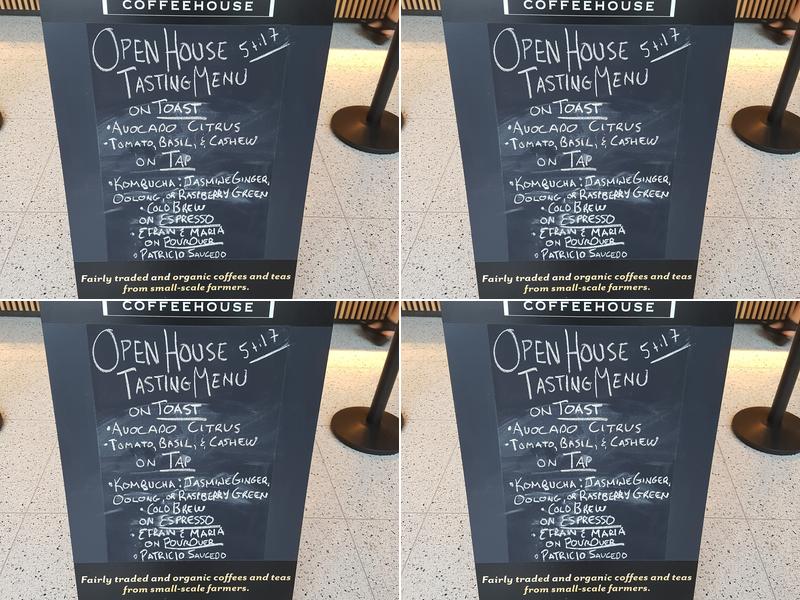 COFFEEHOUSE
OPEN HOUSE
TASTING MENU
ON TOAST
•AVOCADO CITRUS
-TOMATO, BASIL, & CASHEW
ON TAP
•KOMBUCHA: JASMINE GINGER,
OOLONG, OR RASPBERRY GREEN
•COLD BREW
ON ESPRESSO
•EFRAIN & MARIA
ON POUROVER
•PATRICIO SAUCEDO
Fairly traded and organic coffees and teas
from small-scale farmers.
COFFEEHOUSE
OPEN HOUSE
TASTING MENU
ON TOAST
•AVOCADO CITRUS
-TOMATO, BASIL, & CASHEW
ON TAP
•KOMBUCHA: JASMINE GINGER,
OOLONG, OR RASPBERRY GREEN
•COLD BREW
ON ESPRESSO
•EFRAIN & MARIA
ON POUROVER
•PATRICIO SAUCEDO
Fairly traded and organic coffees and teas
from small-scale farmers.
COFFEEHOUSE
OPEN HOUSE
TASTING MENU
ON TOAST
•AVOCADO CITRUS
-TOMATO, BASIL, & CASHEW
ON TAP
•KOMBUCHA: JASMINE GINGER,
OOLONG, OR RASPBERRY GREEN
•COLD BREW
ON ESPRESSO
•EFRAIN & MARIA
ON POUROVER
•PATRICIO SAUCEDO
Fairly traded and organic coffees and teas
from small-scale farmers.
COFFEEHOUSE
OPEN HOUSE
TASTING MENU
ON TOAST
•AVOCADO CITRUS
-TOMATO, BASIL, & CASHEW
ON TAP
•KOMBUCHA: JASMINE GINGER,
OOLONG, OR RASPBERRY GREEN
•COLD BREW
ON ESPRESSO
•EFRAIN & MARIA
ON POUROVER
•PATRICIO SAUCEDO
Fairly traded and organic coffees and teas
from small-scale farmers.